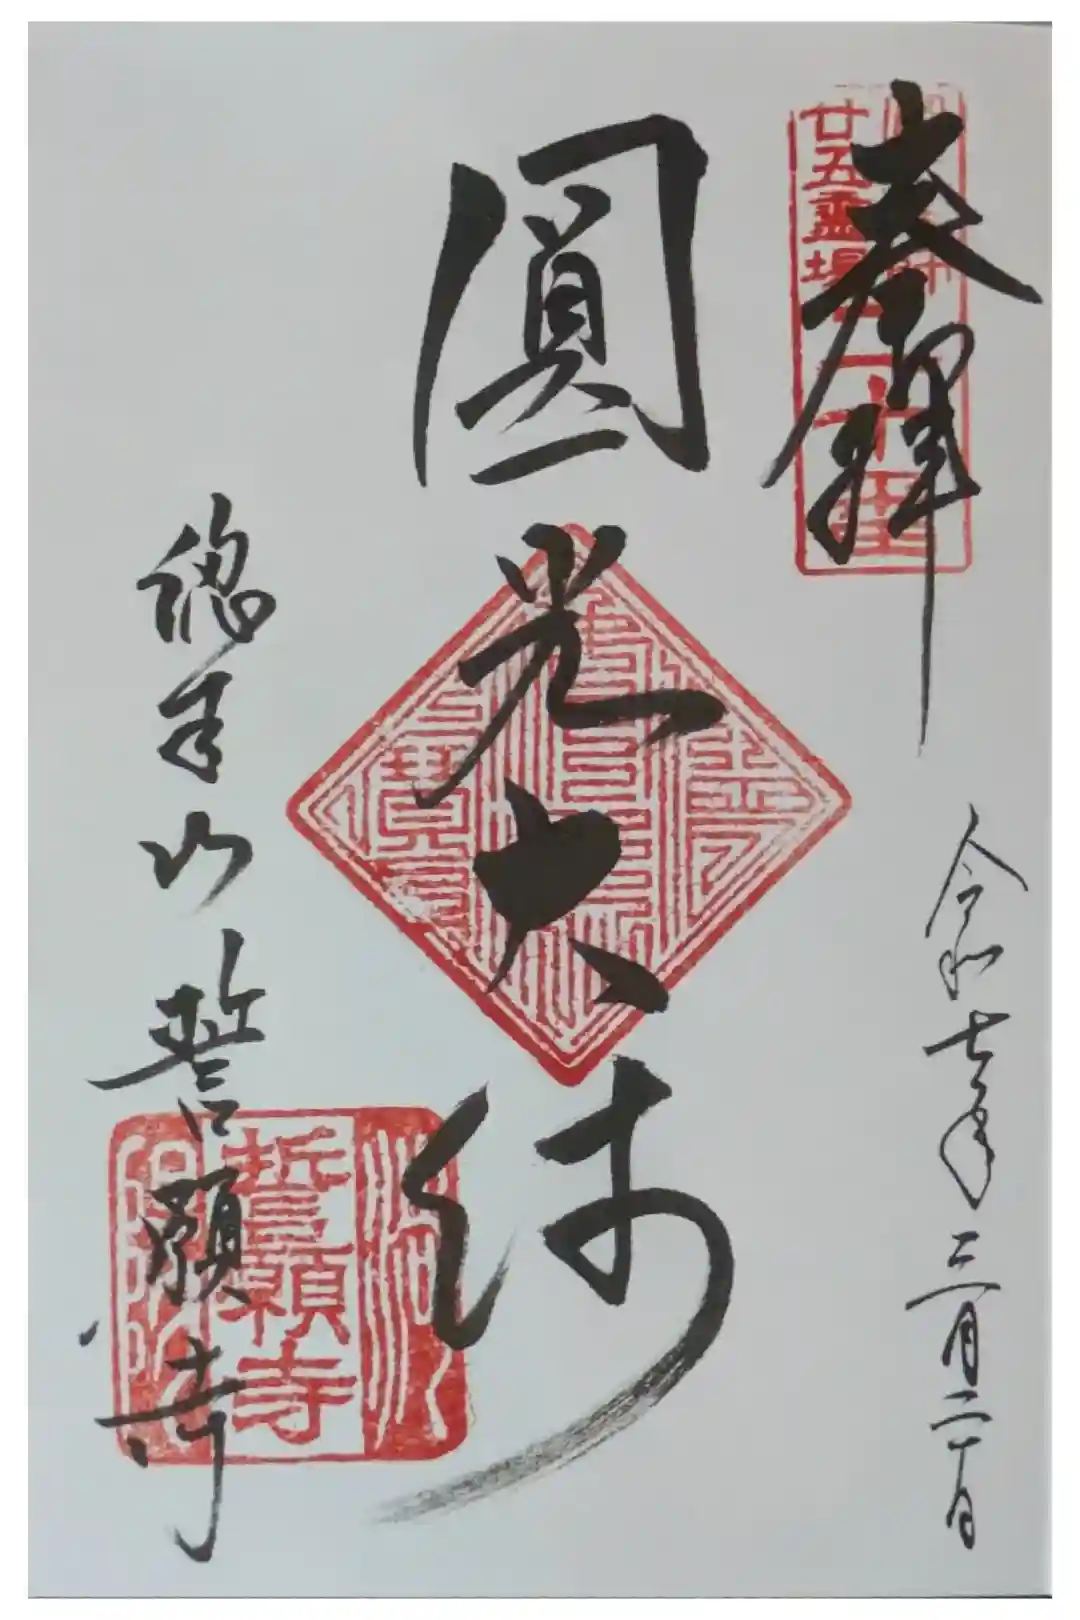 奉拝
廿五霊場
二十番
令和七年三月二十日
圓光大師
総本山
誓願寺
誓願寺